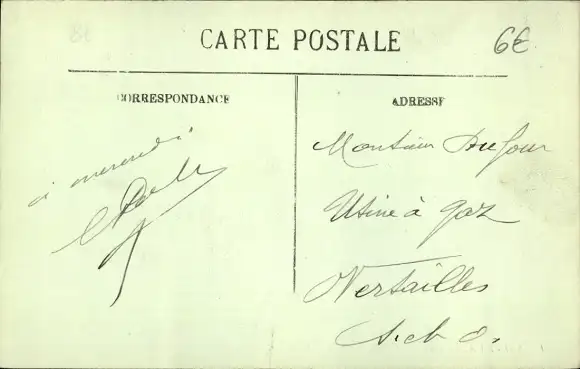 6€
CARTE POSTALE
CORRESPONDANCE
ADRESSE
à mercredi
Monsieur Dufour
Usine à Gaz
Versailles
S. et O.